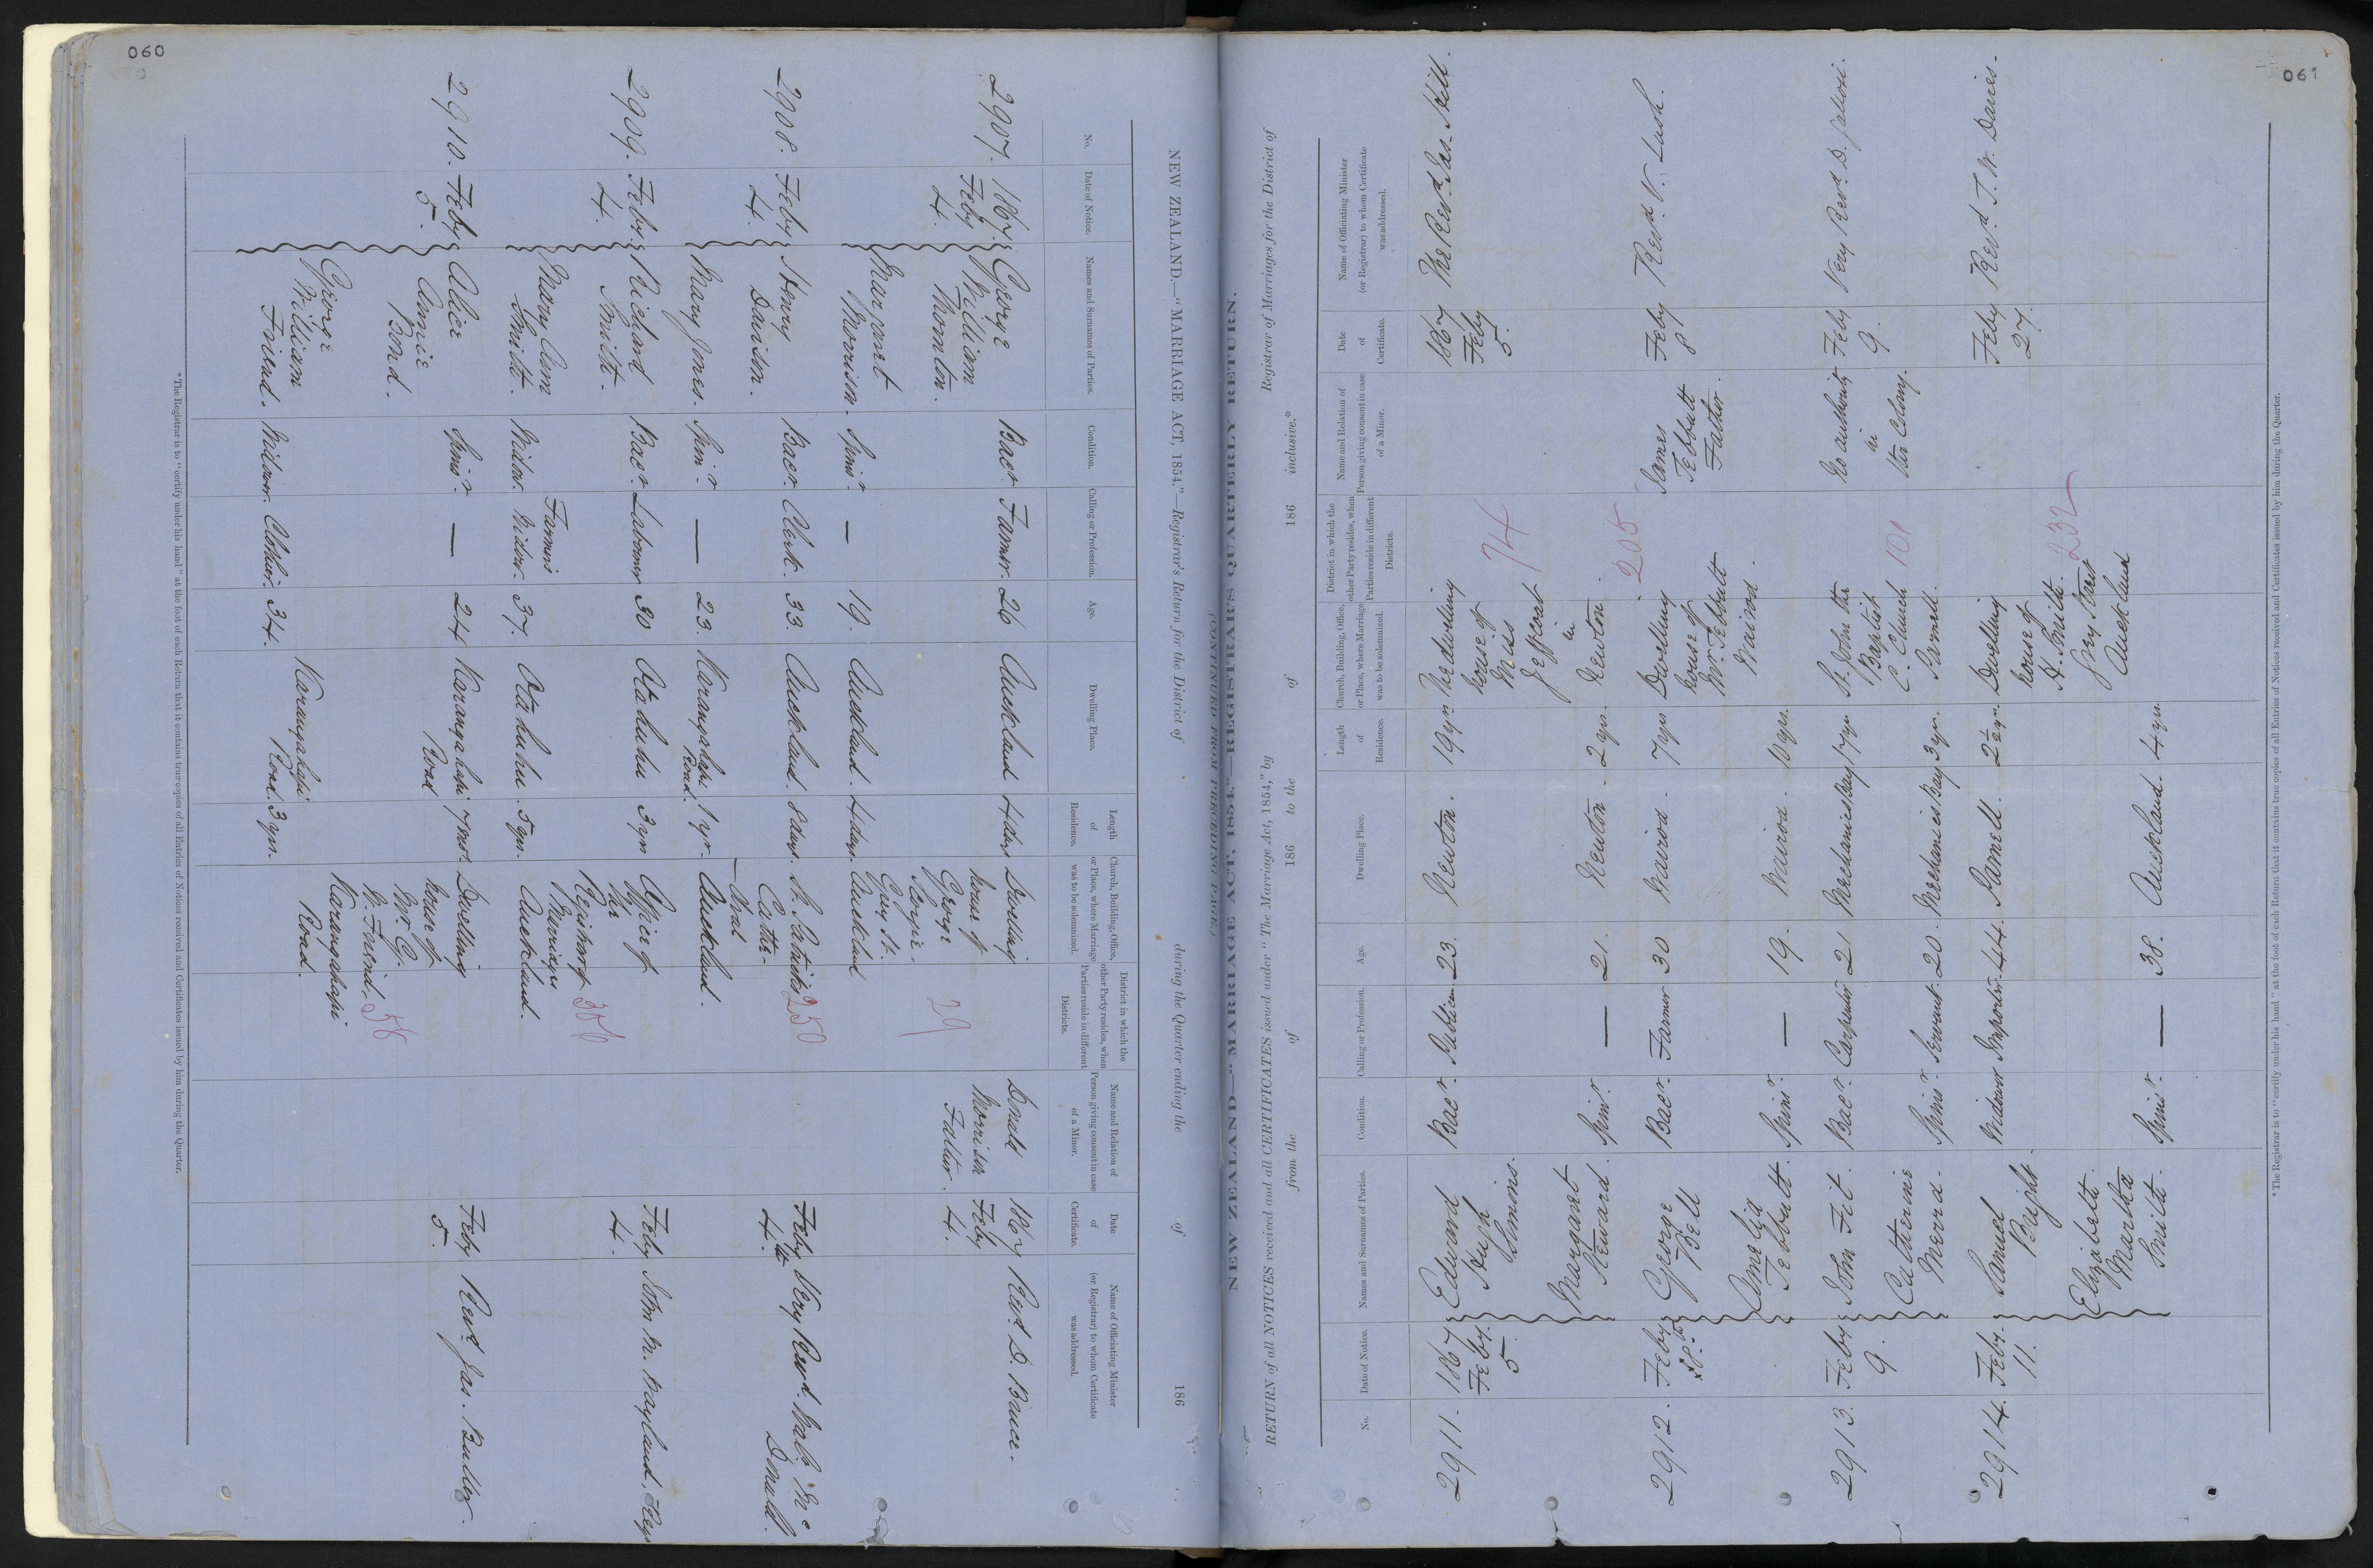 060
NEW ZEALAND.—"MARRIAGE ACT, 1854."—Registrar's Return for the District of during the Quarter ending the of 186
No.
Date of Notice.
Names and Surnames of Parties.
Condition.
Calling or Profession.
Age.
Dwelling Place.
Length
of
Residence.
Church, Building, Office,
or Place, where Marriage
was to be solemnized.
District in which the
other Party resides, when
Parties reside in different
Districts.
Name and Relation of
Person giving consent in case
of a Minor.
Date
of
Certificate.
Name of Officiating Minister
(or Registrar) to whom Certificate
was addressed.
2907.
1867.
Feby
4.
George
William
Thornton.
Bacr.
Farmer.
26
Auckland
4 days
Margaret
Morrison.
Spinr.
—
19.
Auckland.
4 days.
Dwelling
house of
George
Gorrie.
Grey St.
Auckland
29
Donald
Morrison
Father.
1867
Feby
4.
Revd. D. Bruce.
2908.
Feby
4.
Henry
Davison.
Bacr.
Clerk.
33.
Auckland.
8 days.
Mary Jones.
Spinr.
—
23.
Karangahapi
Road.
1 yr.
St. Patrick's
Cathe-
dral
Auckland.
250
Feby
4th
Very Revd. Walt. Mc
Donald.
2909.
Feby.
4.
Richard
Smith.
Bacr.
Labourer
30
Otahuhu
3 yrs
Mary Ann
Smith.
Widow.
Farmers
Widow.
37.
Otahuhu.
5 yrs.
Office of
the
Registrar of
Marriages
Auckland.
306
Feby
4.
John M. Wayland. Regr
2910.
Feby
5.
Alice
Annie
Bond.
Spinr.
—
24
Karangahapi
Road
7 mos.
George
William
Friend.
Widower.
Clothier.
34.
Karangahapi
Road.
3 yrs.
Dwelling
house of
Mr. G.
W. Friend,
Karangahapi
Road.
58
Feby
5.
Revd. Jas. Buller.
*The Registrar is to "certify under his hand" at the foot of each Return that it contains true copies of all Entries of Notices received and Certificates issued by him during the Quarter.
061
NEW ZEALAND.—"MARRIAGE ACT, 1854."—REGISTRAR'S QUARTERLY RETURN.
(CONTINUED FROM PRECEDING PAGE.)
RETURN of all NOTICES received and all CERTIFICATES issued under "The Marriage Act, 1854," by Registrar of Marriages for the District of
from the of 186 to the of 186 inclusive.*
No.
Date of Notice.
Names and Surnames of Parties.
Condition.
Calling or Profession.
Age.
Dwelling Place.
Length
of
Residence.
Church, Building, Office,
or Place, where Marriage
was to be solemnized.
District in which the
other Party resides, when
Parties reside in different
Districts.
Name and Relation of
Person giving consent in case
of a Minor.
Date
of
Certificate.
Name of Officiating Minister
(or Registrar) to whom Certificate
was addressed.
2911.
1867
Feby.
5.
Edward
Hugh
Bacr.
Publican
23.
Newton.
19 yrs
Margaret
Steward.
Spinr.
—
21.
Newton.
2 yrs.
The dwelling
house of
Miss
in
Newton.
74
1867
Feby
5.
The Revd. Jas. Hill.
2912.
Feby
8th
George
Bell
Bacr.
Farmer
30
Wairoa.
7 yrs
Amelia
Tebbutt.
Spinr.
—
19.
Wairoa.
10 yrs.
Dwelling
house of
Mr. Tebbutt
Wairoa.
205
James
Tebbutt
Father.
Feby
8
Revd. V. Lush.
2913.
Feby
9.
John Fit.
Bacr.
Carpenter
21
Mechanics Bay
17 yrs
Catherine
Spinr.
Servant.
20.
Mechanics Bay
3 yrs.
St. John the
Baptist
C. Church
Parnell.
101
No authority
in
the Colony.
Feby
9.
Very Revd. D.
2914.
Feby.
11.
Samuel
Bright.
Widower
Importer.
44.
Parnell.
2½ yrs.
Elizabeth
Martha
Smith.
Spinr.
—
38.
Auckland.
4 yrs.
Dwelling
house of
H. Smith.
Grey Street
Auckland
232
Feby
27.
Revd. T. W. Davies.
*The Registrar is to "certify under his hand" at the foot of each Return that it contains true copies of all Entries of Notices received and Certificates issued by him during the Quarter.